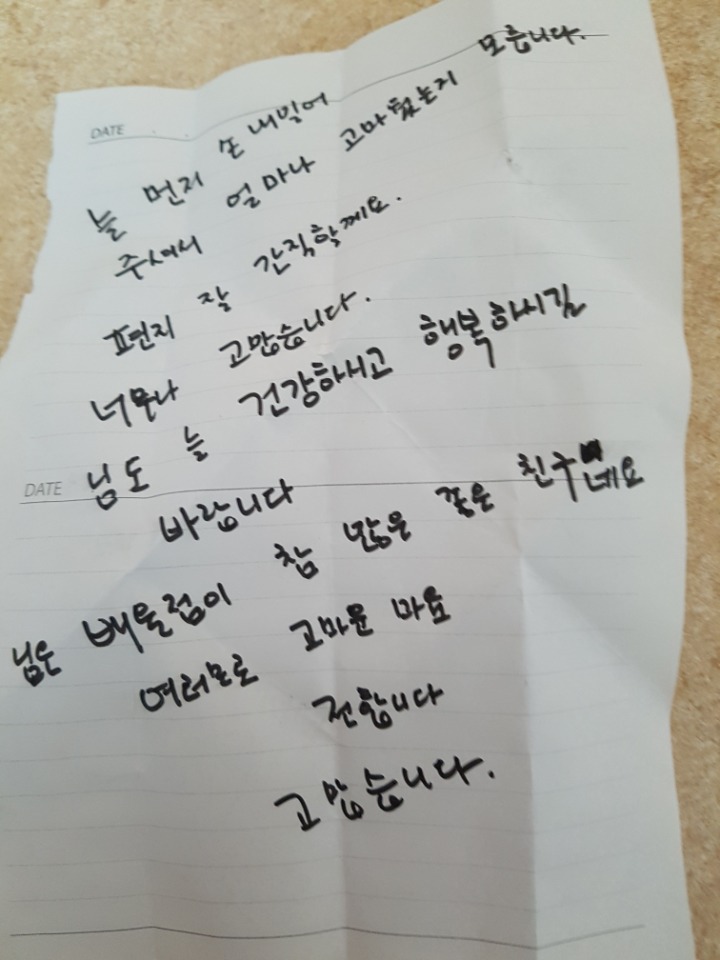 DATE
늘 먼저 손 내밀어
주셔서 얼마나 고마웠는지 모릅니다.
편지 잘 간직할께요.
너무나 고맙습니다.
님도 늘 건강하시고 행복하시길
DATE
바랍니다
님은 배울점이 참 많은 좋은 친구네요
여러모로 고마운 마음
전합니다
고맙습니다.